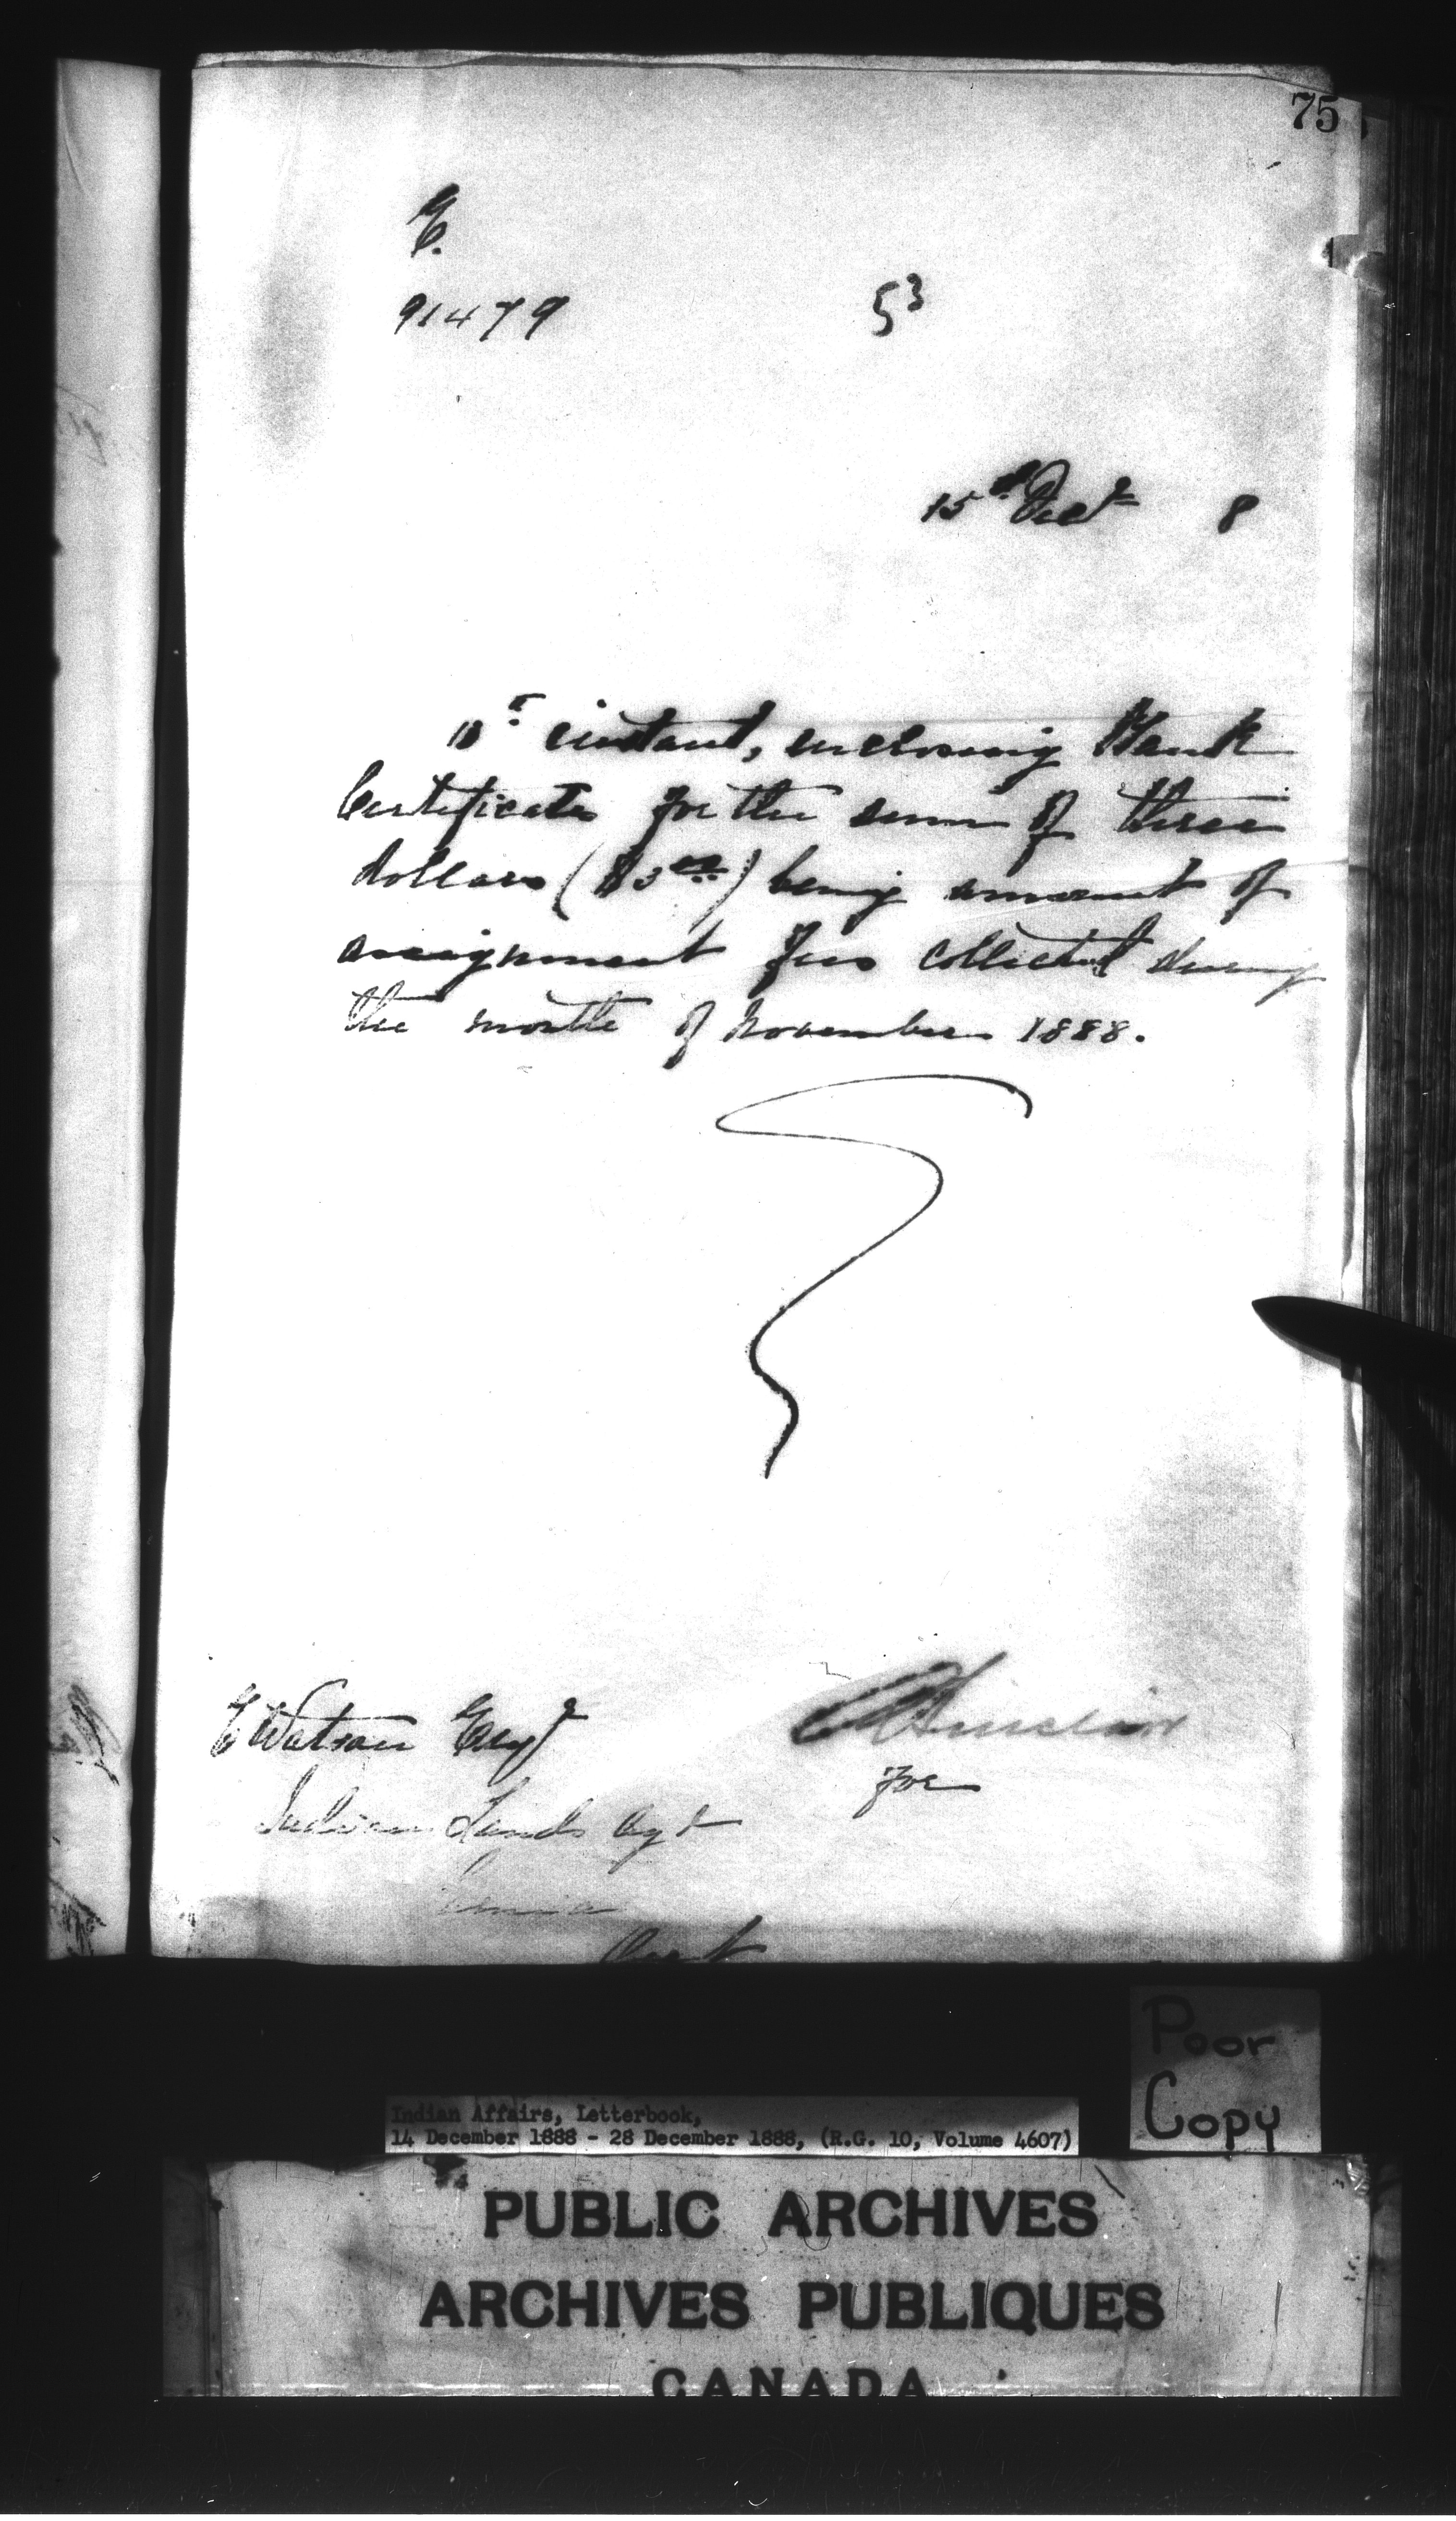 75
E.
91479
53
15th Dect 8
10th instant, enclosing Bank
Certificate for the sum of three
dollars ($3.00) being amount of
assignment fees collected during
the month of November 1888.
E Watson Esqr
Sinclair
for
Indian Lands Agt
Ont
Poor
Copy
Indian Affairs, Letterbook,
14 December 1888 - 28 December 1888, (R.G. 10, Volume 4607)
PUBLIC ARCHIVES
ARCHIVES PUBLIQUES
CANADA